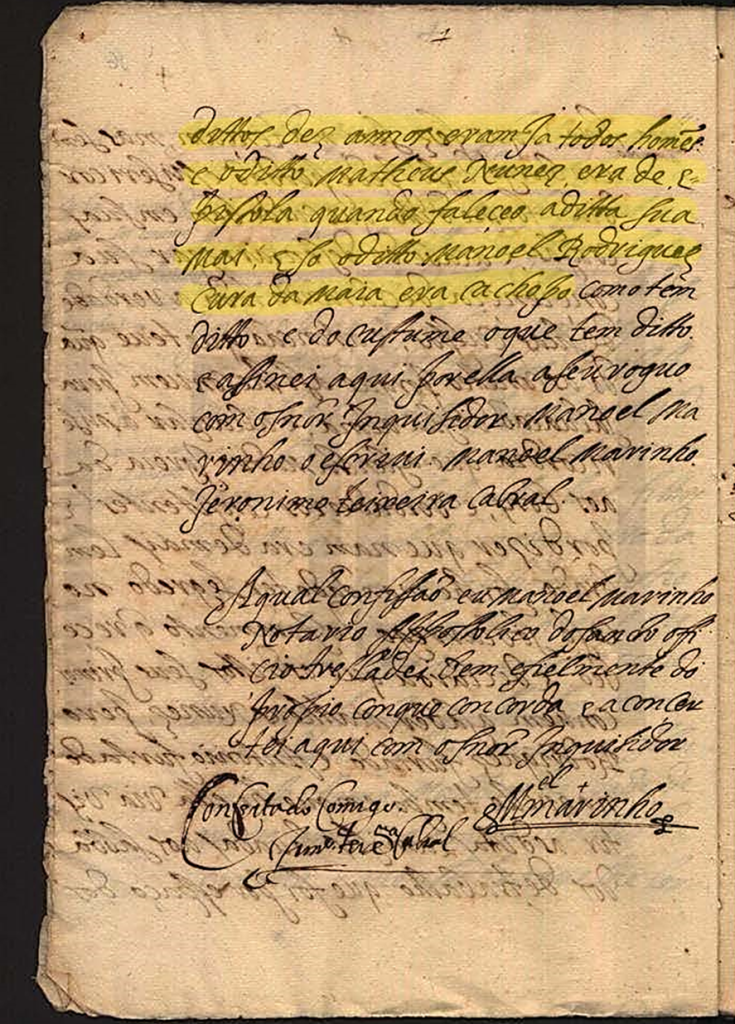 dittos dez annos eram Ja todos homẽs
e o ditto Matheus Nunez era de E-
pistola quando faleceo a ditta sua
Mai, e so o ditto Manoel Rodriguez
Cura da maia era cachopo como tem
ditto e do custume o que tem ditto.
e assinei aqui por ella a seu roguo
com o snõr Inquisidor. Manoel Ma
rinho o escrivi. Manoel Marinho.
Jeronimo teixeira Cabral.
A qual confissaõ eu manoel marinho
Notario Appostolico do sancto offi
cio tresladei bem e fielmente do
propio con que concorda e a concer
tei aqui com o snõr Inquisidor
Consertado Comigo.
M.el marinho
Jmo. teix.ra Cabral